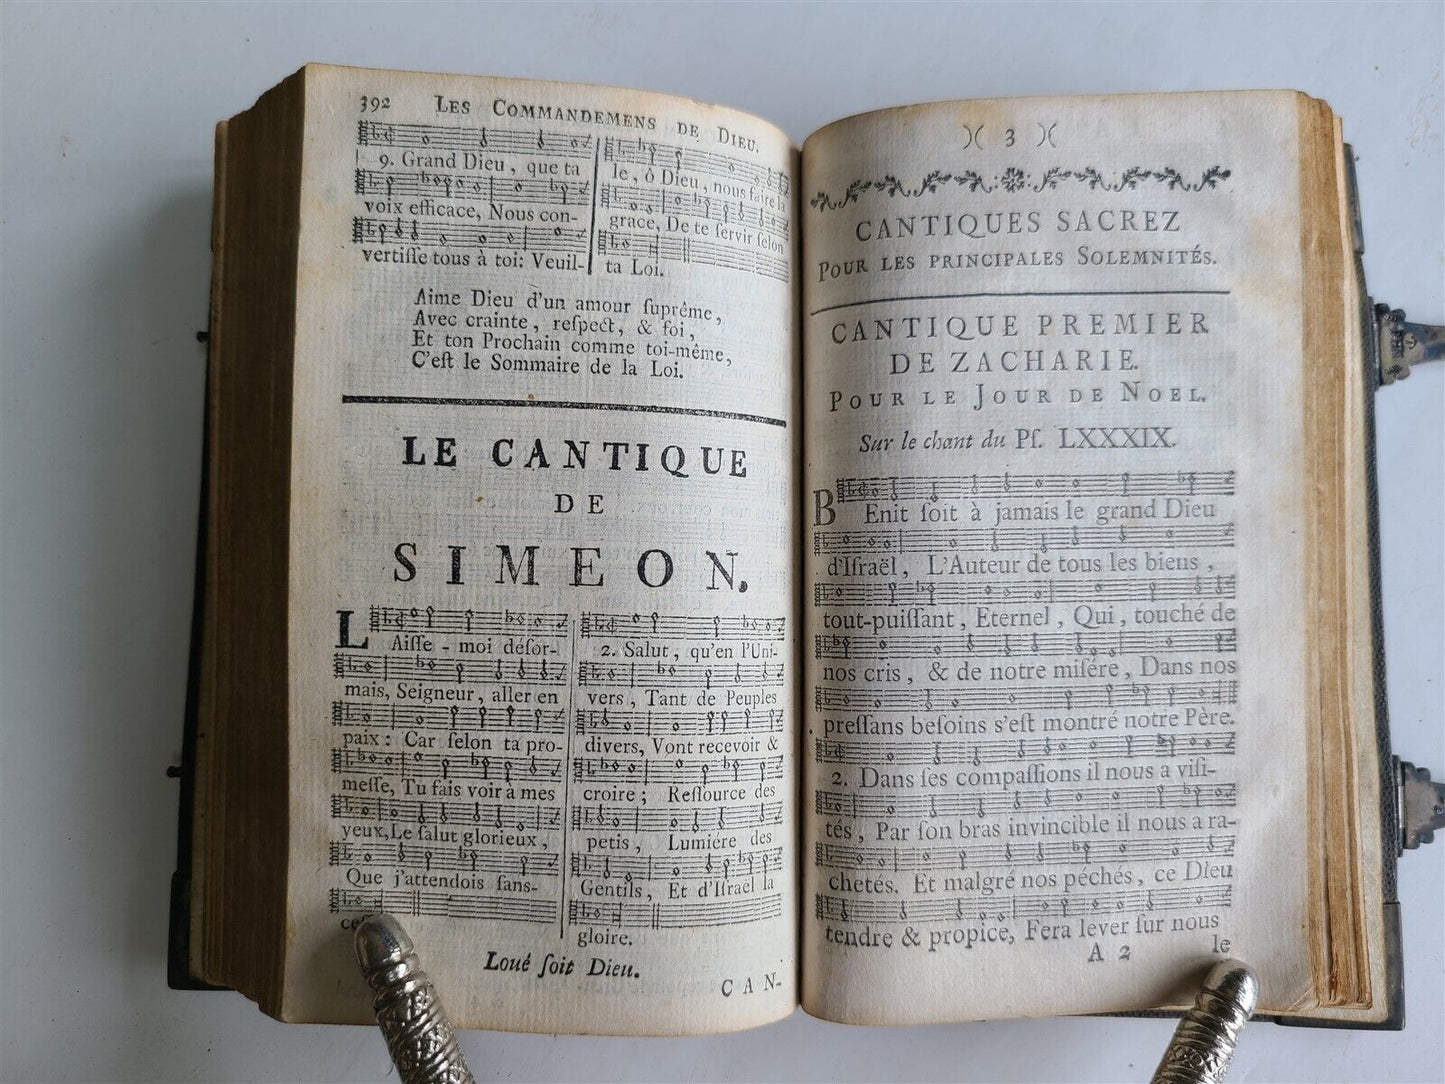 392 LES COMMANDEMENS DE DIEU.
9. Grand Dieu, que ta
voix efficace, Nous con-
vertiſſe tous à toi: Veuil-
le, ô Dieu, nous faire la
grace, De te ſervir ſelon
ta Loi.
Aime Dieu d'un amour ſuprême,
Avec crainte, reſpect, & foi,
Et ton Prochain comme toi-même,
C'eſt le Sommaire de la Loi.
LE CANTIQUE
DE
SIMEON.
LAiſſe - moi déſor-
mais, Seigneur, aller en
paix: Car ſelon ta pro-
meſſe, Tu fais voir à mes
yeux, Le ſalut glorieux,
Que j'attendois ſans-
2. Salut, qu'en l'Uni-
vers, Tant de Peuples
divers, Vont recevoir &
croire; Reſſource des
petis, Lumiére des
Gentils, Et d'Iſraël la
gloire.
Loué ſoit Dieu.
CAN-
)( 3 )(
CANTIQUES SACREZ
POUR LES PRINCIPALES SOLEMNITÉS.
CANTIQUE PREMIER
DE ZACHARIE.
POUR LE JOUR DE NOEL.
Sur le chant du Pſ. LXXXIX.
BEnit ſoit à jamais le grand Dieu
d'Iſraël, L'Auteur de tous les biens,
tout-puiſſant, Eternel, Qui, touché de
nos cris, & de notre miſére, Dans nos
preſſans beſoins s'eſt montré notre Père.
2. Dans ſes compaſſions il nous a viſi-
tés, Par ſon bras invincible il nous a ra-
chetés. Et malgré nos péchés, ce Dieu
tendre & propice, Fera lever ſur nous
A 2 le